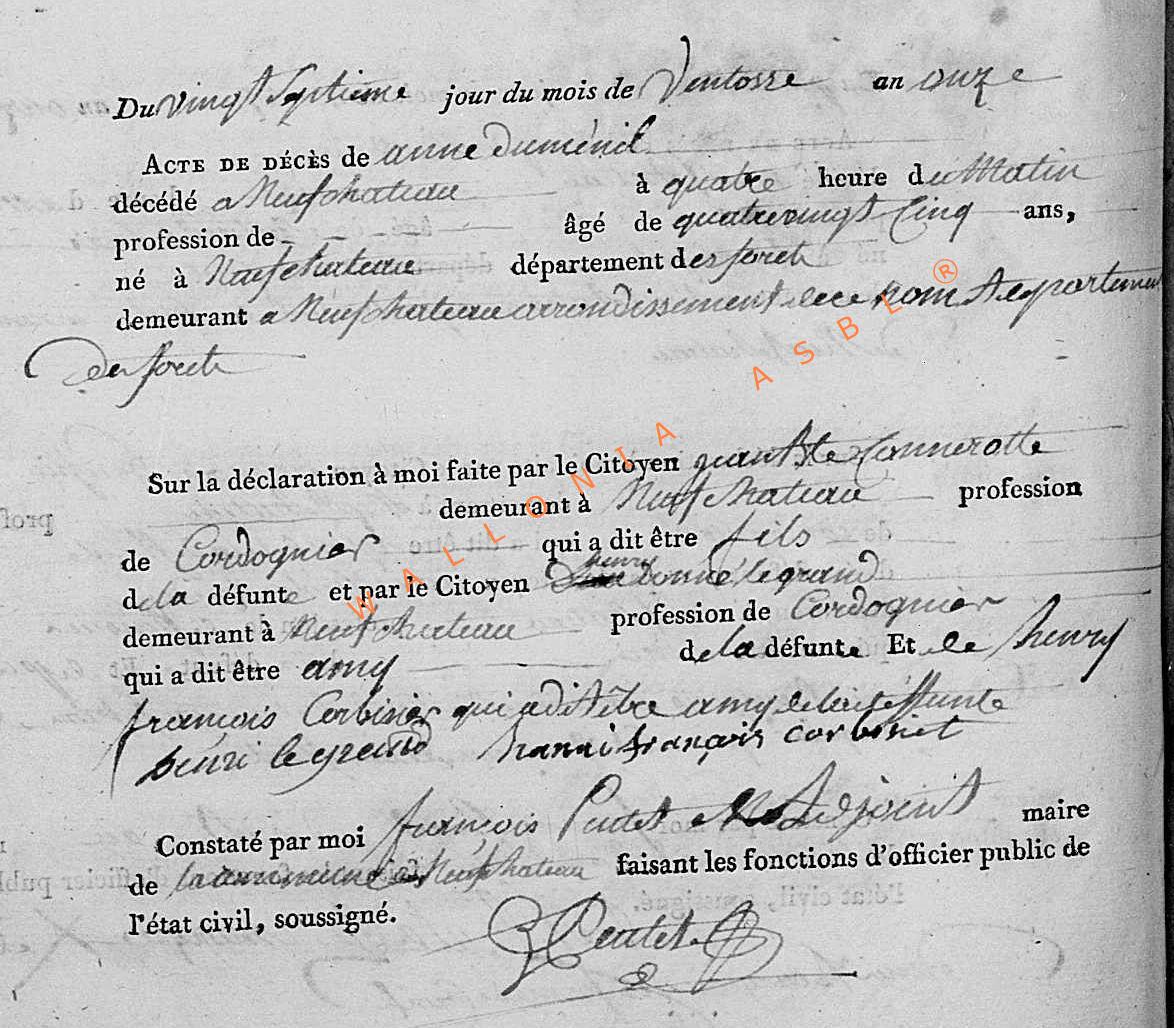 Du vingt Septieme jour du mois de Ventosse an onze
ACTE DE DÉCÈS de anne duménil
décédé a Neufchateau à quatre heure du Matin
profession de âgé de quatrevingt Cinq ans,
né à Neufchateau département des forets
demeurant a Neufchateau arrondissement de ce nom Departement
des forets
Sur la déclaration à moi faite par le Citoyen Connerotte
demeurant à Neufchateau profession
de Cordognier qui a dit être fils
de la défunte et par le Citoyen henry le grand
demeurant à Neufchateau profession de Cordognier
qui a dit être amy de la défunte Et de henry
françois Corbisier qui a dit être amy de la deffunte
henri le grand hanri françois corbisiet
Constaté par moi françois Pentet adjoint maire
de la commune de Neufchateau faisant les fonctions d'officier public de
l'état civil, soussigné.
Pentet
WALLONIA ASBL ®